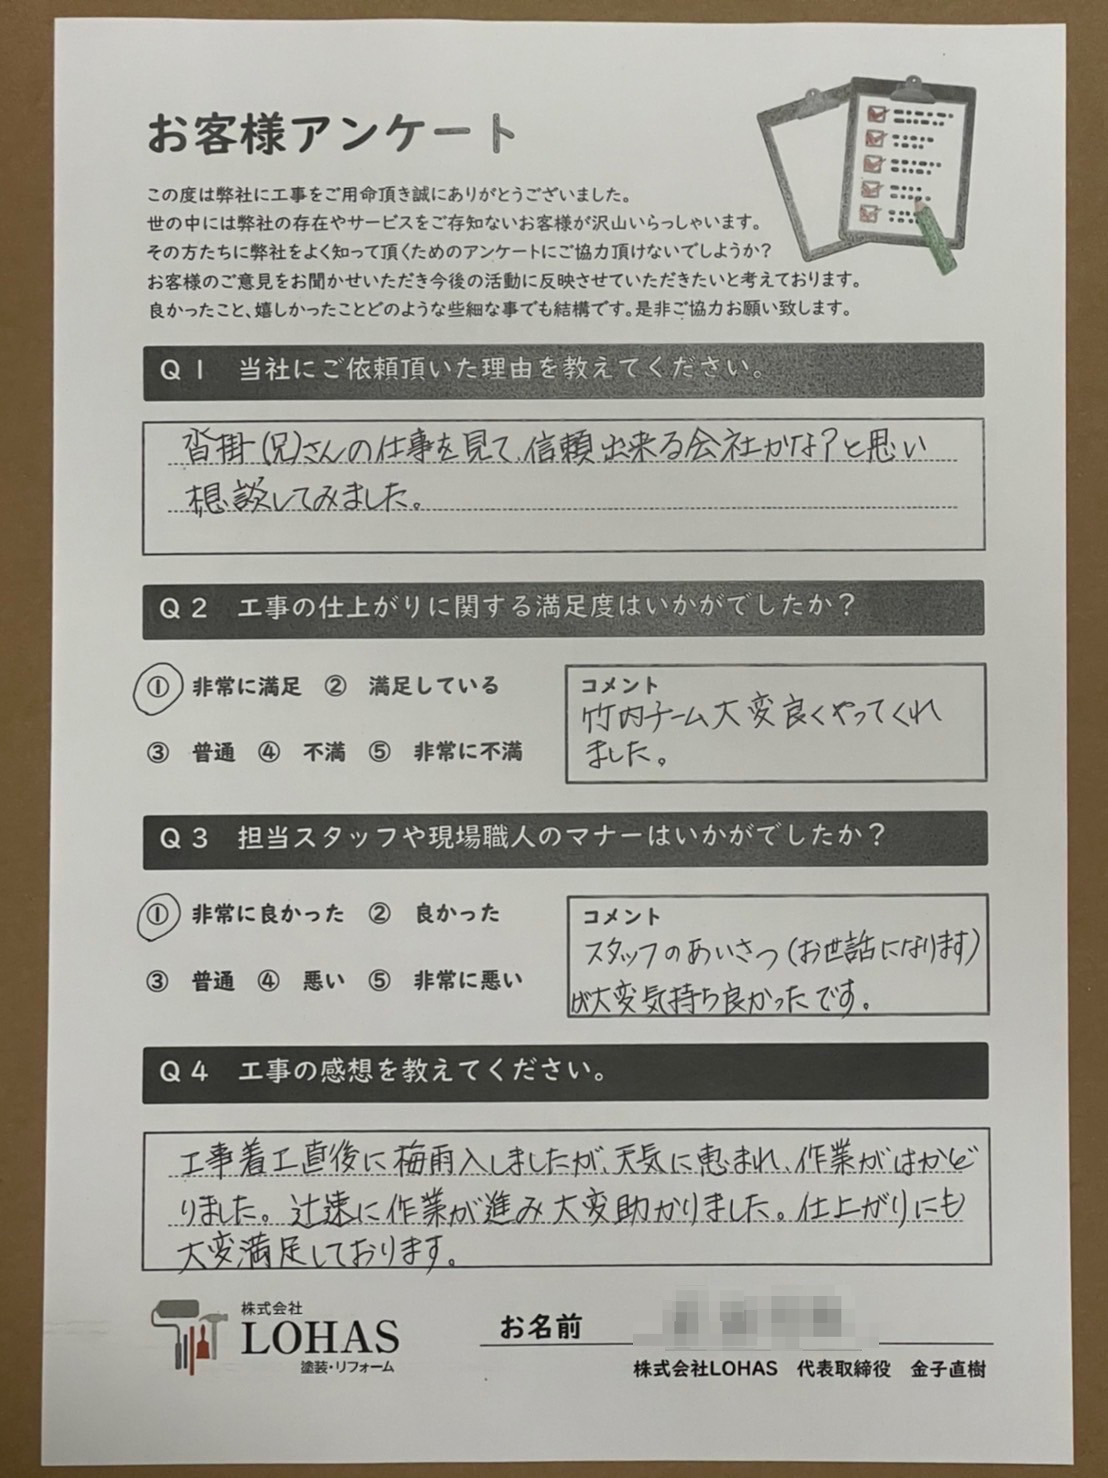 お客様アンケート
この度は弊社に工事をご用命頂き誠にありがとうございました。
世の中には弊社の存在やサービスをご存知ないお客様が沢山いらっしゃいます。
その方たちに弊社をよく知って頂くためのアンケートにご協力頂けないでしようか?
お客様のご意見をお聞かせいただき今後の活動に反映させていただきたいと考えております。
良かったこと、嬉しかったことどのような些細な事でも結構です。是非ご協力お願い致します。
Q1 当社にご依頼頂いた理由を教えてください。
沓掛(兄)さんの仕事を見て、信頼出来る会社かな?と思い
想談してみました。
Q2 工事の仕上がりに関する満足度はいかがでしたか?
① 非常に満足 ② 満足している
③ 普通 ④ 不満 ⑤ 非常に不満
コメント
竹内チーム大変良くやってくれ
ました。
Q3 担当スタッフや現場職人のマナーはいかがでしたか?
① 非常に良かった ② 良かった
③ 普通 ④ 悪い ⑤ 非常に悪い
コメント
スタッフのあいさつ(お世話になります)
が大変気持ち良かったです。
Q4 工事の感想を教えてください。
工事着工直後に梅雨入しましたが、天気に恵まれ、作業がはかど
りました。辻速に作業が進み大変助かりました。仕上がりにも
大変満足しております。
株式会社
LOHAS
塗装・リフォーム
お名前
株式会社LOHAS 代表取締役 金子直樹